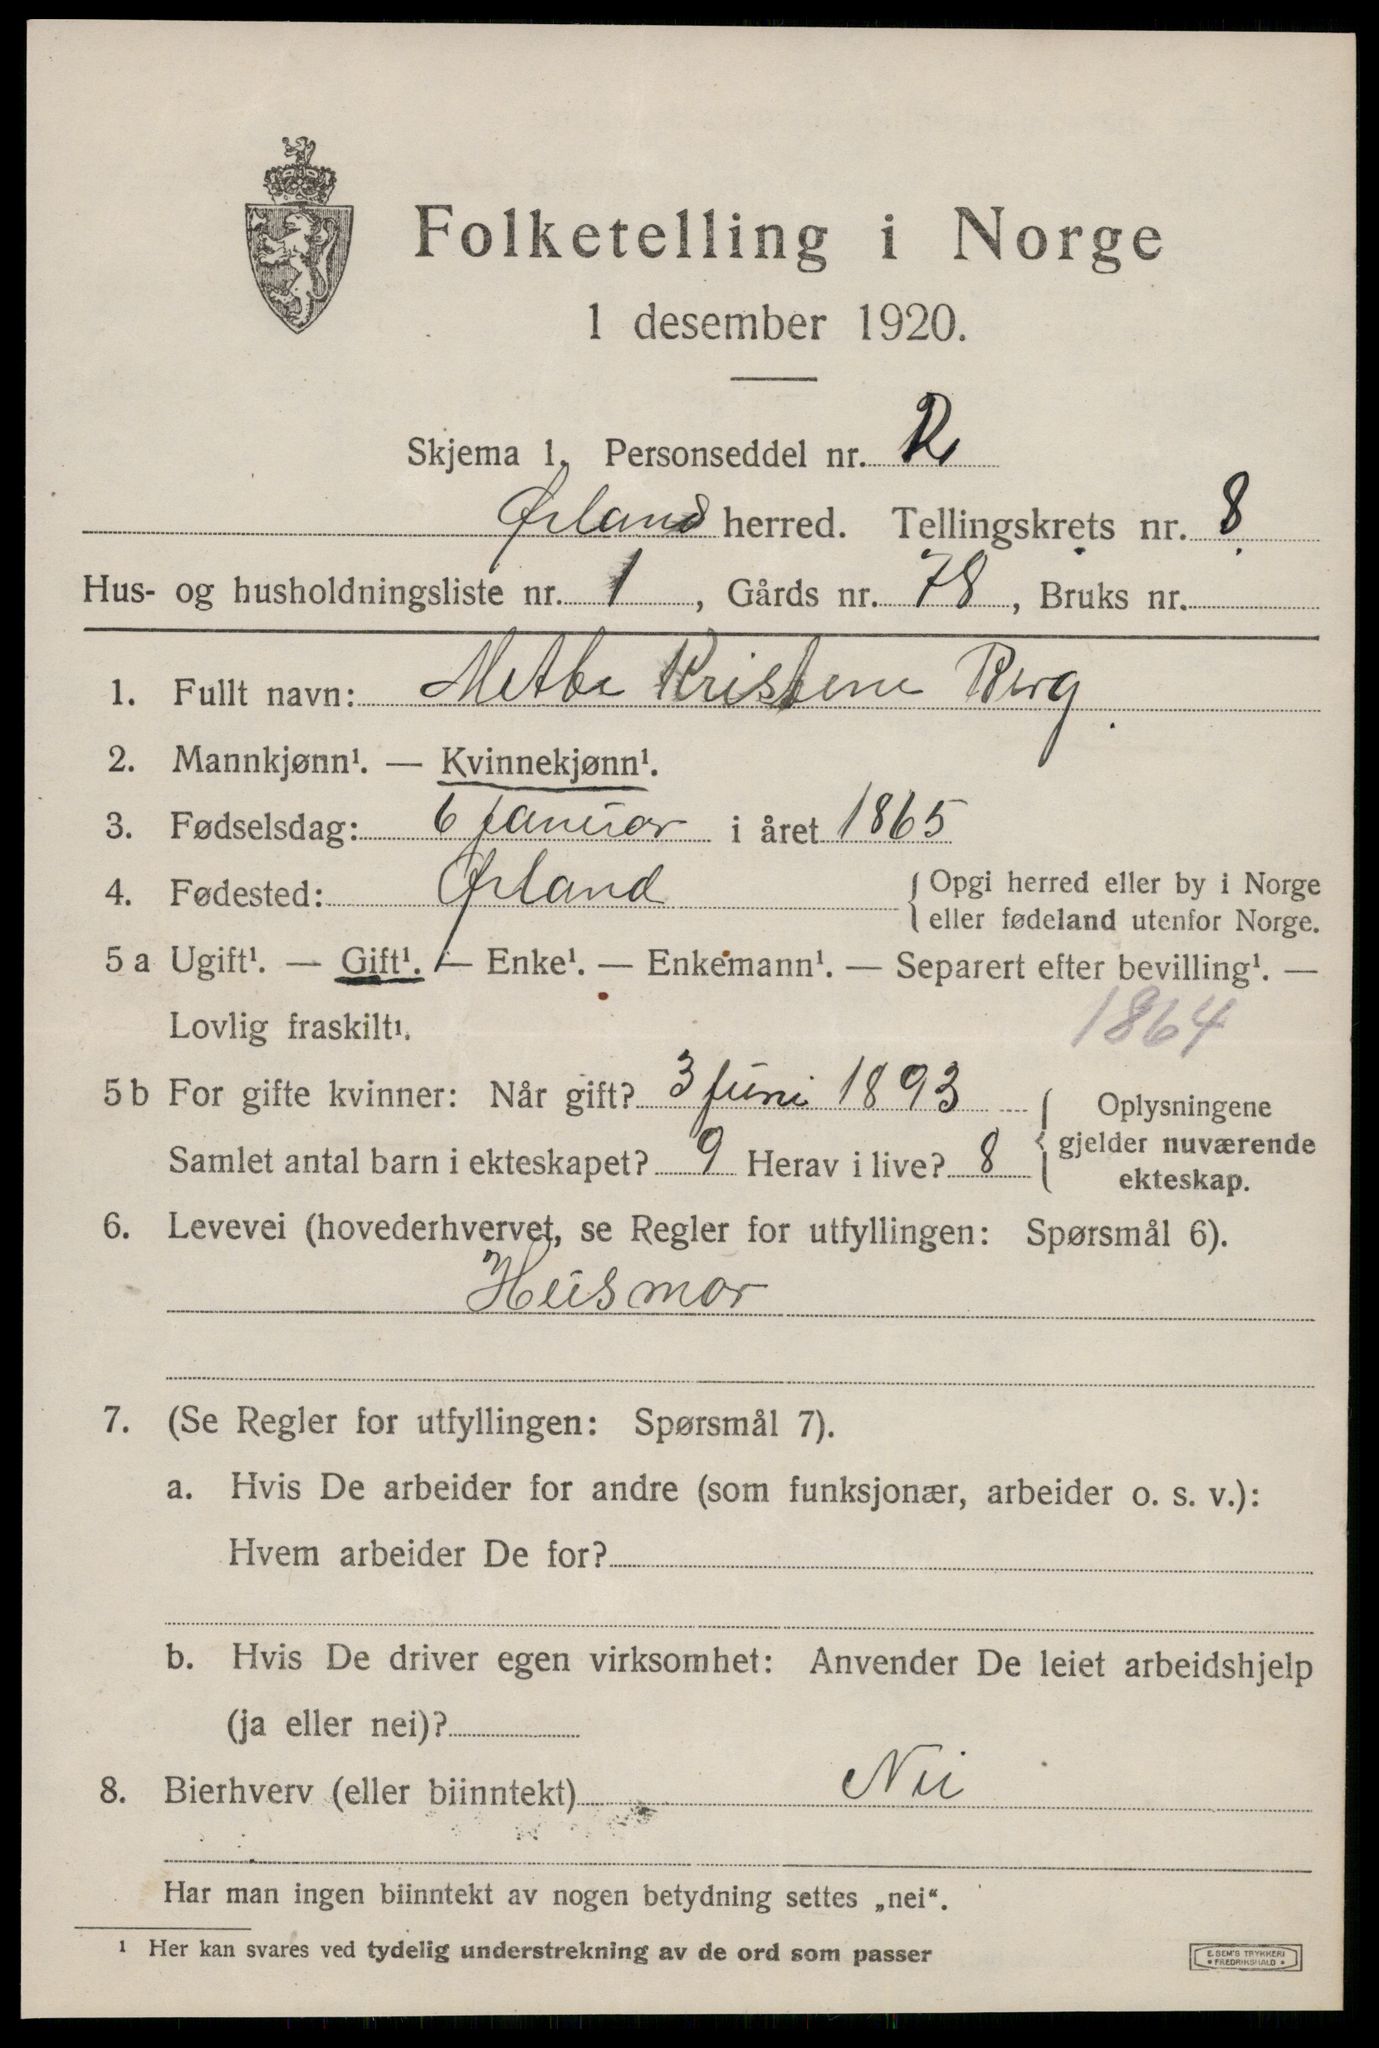 Folketelling i Norge
1 desember 1920.
Skjema 1. Personseddel nr. 2
Ørland herred. Tellingskrets nr. 8
Hus- og husholdningsliste nr. 1, Gårds nr. 78, Bruks nr.
1. Fullt navn: Mette Kristene Berg
2. Mannkjønn¹. — Kvinnekjønn¹.
3. Fødselsdag: 6 januar i året 1865
4. Fødested: Ørland { Opgi herred eller by i Norge
eller fødeland utenfor Norge.
5 a Ugift¹. — Gift¹. — Enke¹. — Enkemann¹. — Separert efter bevilling¹. —
Lovlig fraskilt¹. 1864
5 b For gifte kvinner: Når gift? 3 juni 1893 { Oplysningene
gjelder nuværende
ekteskap.
Samlet antal barn i ekteskapet? 9 Herav i live? 8
6. Levevei (hovederhvervet, se Regler for utfyllingen: Spørsmål 6).
Husmor
7. (Se Regler for utfyllingen: Spørsmål 7).
a. Hvis De arbeider for andre (som funksjonær, arbeider o. s. v.):
Hvem arbeider De for?
b. Hvis De driver egen virksomhet: Anvender De leiet arbeidshjelp
(ja eller nei)?
8. Bierhverv (eller biinntekt) Nei
Har man ingen biinntekt av nogen betydning settes „nei“.
¹ Her kan svares ved tydelig understrekning av de ord som passer
E. SEM'S TRYKKERI
* FREDRIKSHALD *